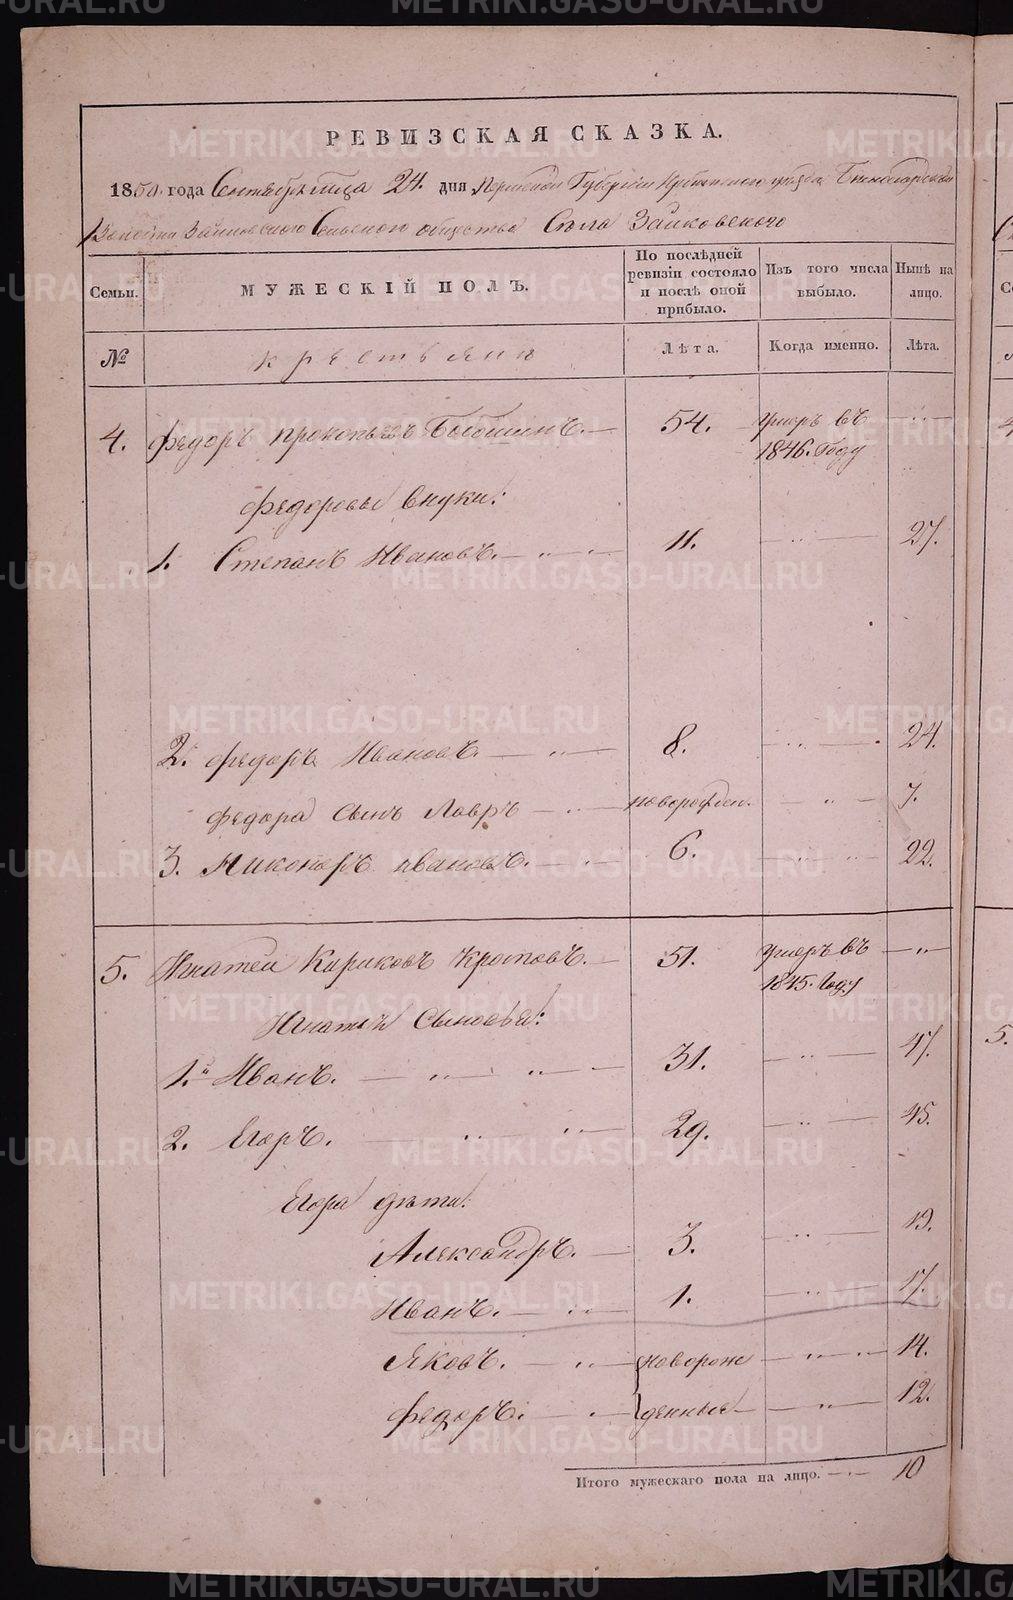 РЕВИЗСКАЯ СКАЗКА.
1850 года Сентября мца 24. дня Пермской Губернiи Ирбитскаго уѣзда
Волости Зайковскаго Сельскаго общества Села Зайковскаго
Семьи.
МУЖЕСКІЙ ПОЛЪ.
По послѣдней ревизіи состояло и послѣ оной прибыло.
Изъ того числа выбыло.
Нынѣ на лицо.
№
крестьяне
Лѣта.
Когда именно.
Лѣта.
4. Федоръ Прокопьевъ — 54. Умеръ въ 1846. Году — „ —
Федоровы внуки:
1. Степанъ Ивановъ. — „ — 11. — „ — 27.
2. Федоръ Ивановъ. — „ — 8. — „ — 24.
Федора сынъ Лавръ — „ — новорожден. — „ — 7.
3. Никоноръ Ивановъ. — „ — 6. — „ — 22.
5. Игнатей Кириковъ Кротовъ. — 51. Умеръ въ 1845. Году — „ —
Игнатья сыновья:
1. й Иванъ. — „ — „ — 31. — „ — 47.
2. Егоръ. — „ — „ — 29. — „ — 45.
Егора дѣти:
Александръ. — 3. — „ — 19.
Иванъ. — „ — 1. — „ — 17.
Яковъ. — „ — новорож — „ — „ — 14.
Федоръ. — „ — денные — „ — 12.
Итого мужескаго пола на лицо. — „ — 10
METRIKI.GASO-URAL.RU